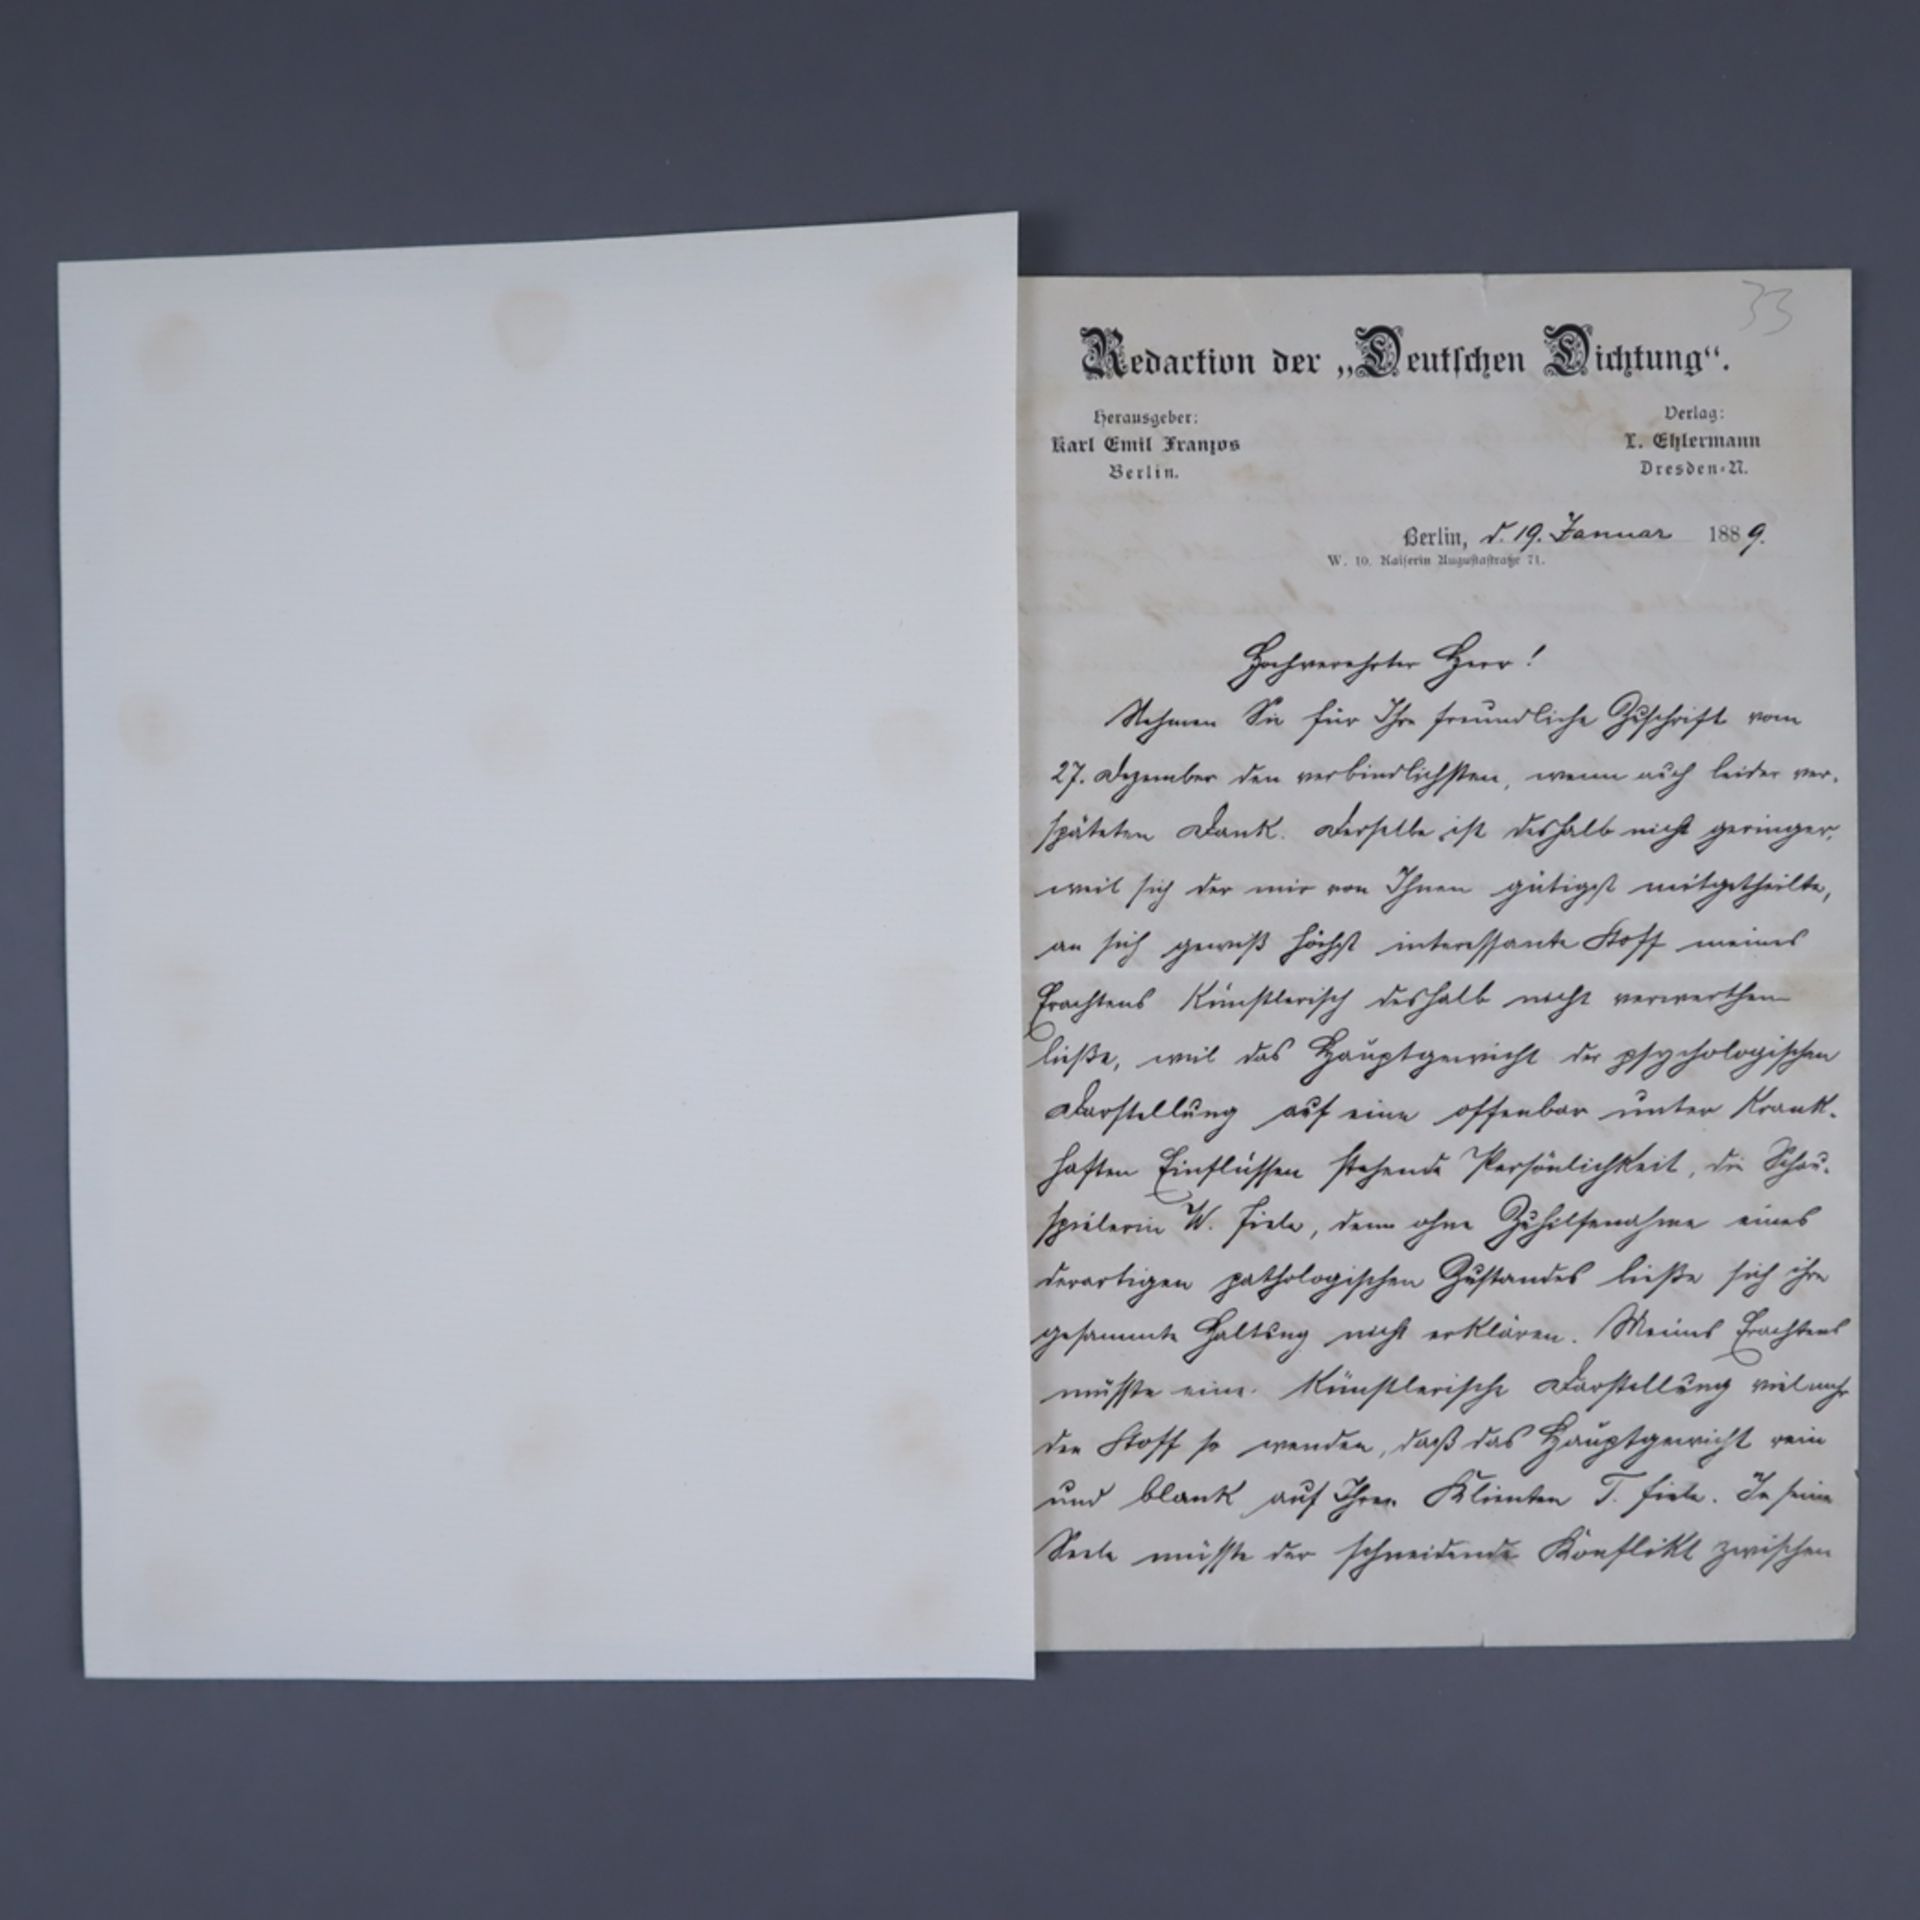 33
Redaction der „Deutschen Dichtung“.
Herausgeber:
Karl Emil Franzos
Berlin.
Verlag:
L. Ehlermann
Dresden-N.
Berlin, d. 19. Januar 1889.
W. 10. Kaiserin Augustastraße 71.
Hochverehrter Herr!
Nehmen Sie für Ihre freundliche Zuschrift vom
27. Dezember den verbindlichsten, wenn auch leider ver-
späteten Dank. Derselbe ist deshalb nicht geringer,
weil sich der mir von Ihnen gütigst mitgetheilte,
an sich gewiß höchst interessante Stoff meines
Erachtens künstlerisch deshalb nicht verwerthen
ließe, weil das Hauptgewicht der psychologischen
Darstellung auf eine offenbar unter krank-
haften Einflüssen stehende Persönlichkeit, die Schau-
spielerin W. fiele, denn ohne Zuhilfenahme eines
derartigen pathologischen Zustandes ließe sich ihre
gesammte Haltung nicht erklären. Meines Erachtens
müsste eine künstlerische Darstellung vielmehr
den Stoff so wenden, daß das Hauptgewicht rein
und blank auf Ihren Klienten T. fiele. In seine
Seele müsste der schneidende Konflikt zwischen